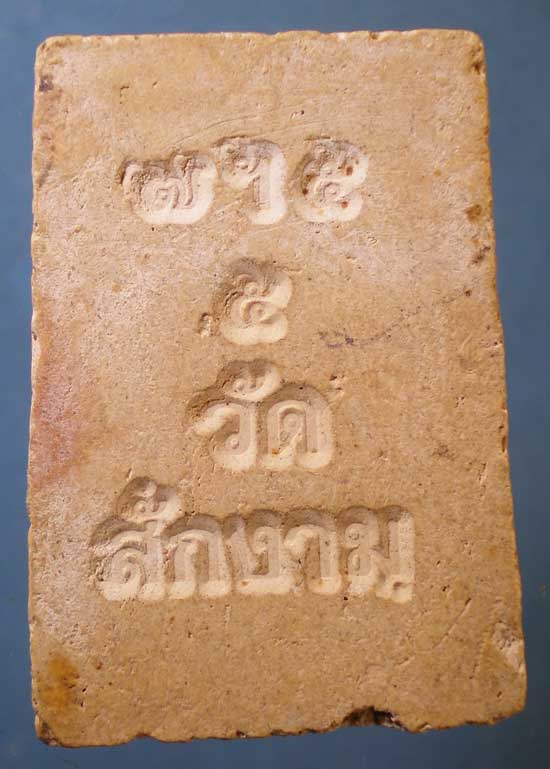 ๗ฯ๕
๕
วัด
สักงาม